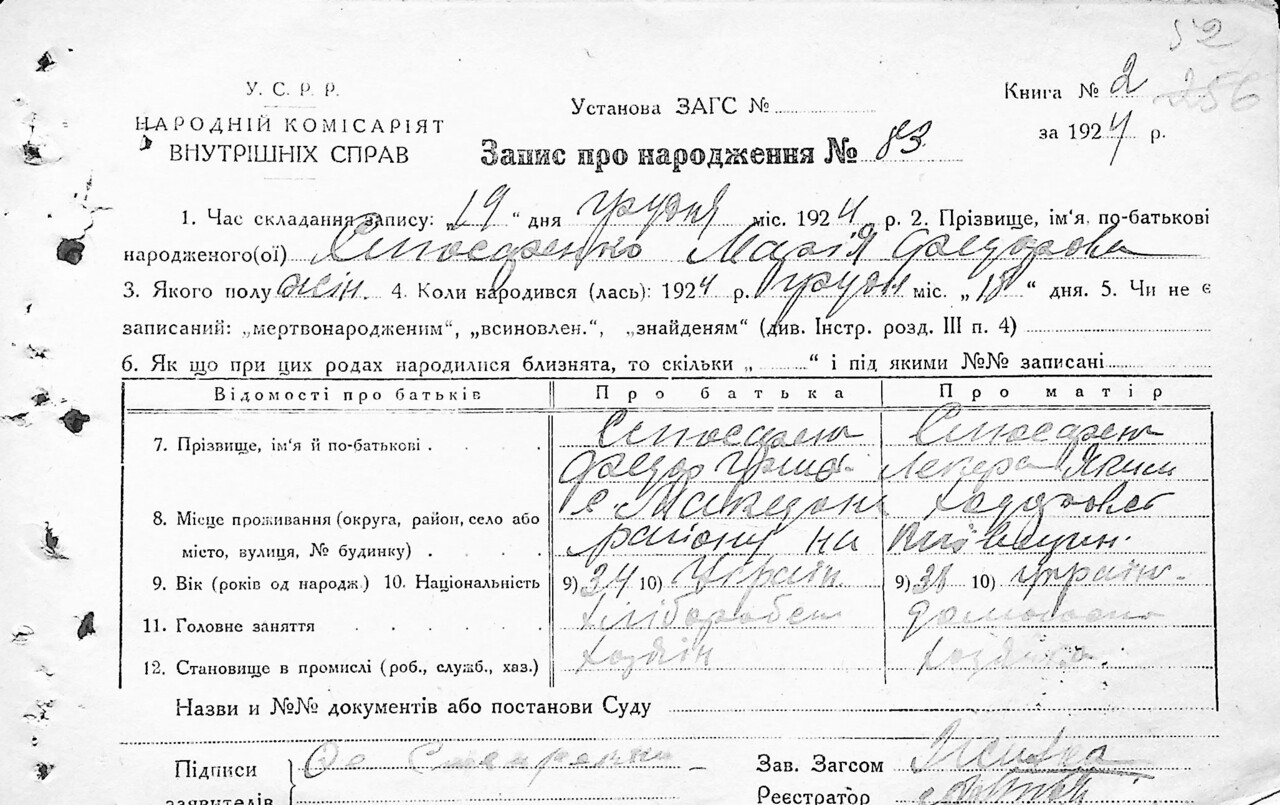 52
У. С. Р. Р.
НАРОДНІЙ КОМІСАРІЯТ
ВНУТРІШНІХ СПРАВ
Установа ЗАГС №
Книга № 2
256
за 1924 р.
Запис про народження № 83
1. Час складання запису: „19“ дня грудня міс. 1924 р. 2. Прізвище, ім'я, по-батькові
народженого(ої) Марія Федорова
3. Якого полу жін. 4. Коли народився (лась): 1924 р. грудня міс. „18“ дня. 5. Чи не є
записаний: „мертвонародженим“, „всиновлен.“, „знайденям“ (див. Інстр. розд. III п. 4)
6. Як що при цих родах народилися близнята, то скільки „ “ і під якими №№ записані
Відомості про батьків Про батька Про матір
7. Прізвище, ім'я й по-батькові
Федор
8. Місце проживання (округа, район, село або
с Македон
місто, вулиця, № будинку) району на
9. Вік (років од народж.) 10. Національність 9) 34 10) Україн. 9) 38 10) україн-
11. Головне заняття хлібороб
12. Становище в промислі (роб., служб., хаз.) хозяїн хозяйка
Назви и №№ документів або постанови Суду
Підписи
заявителів
Зав. Загсом
Реєстратор